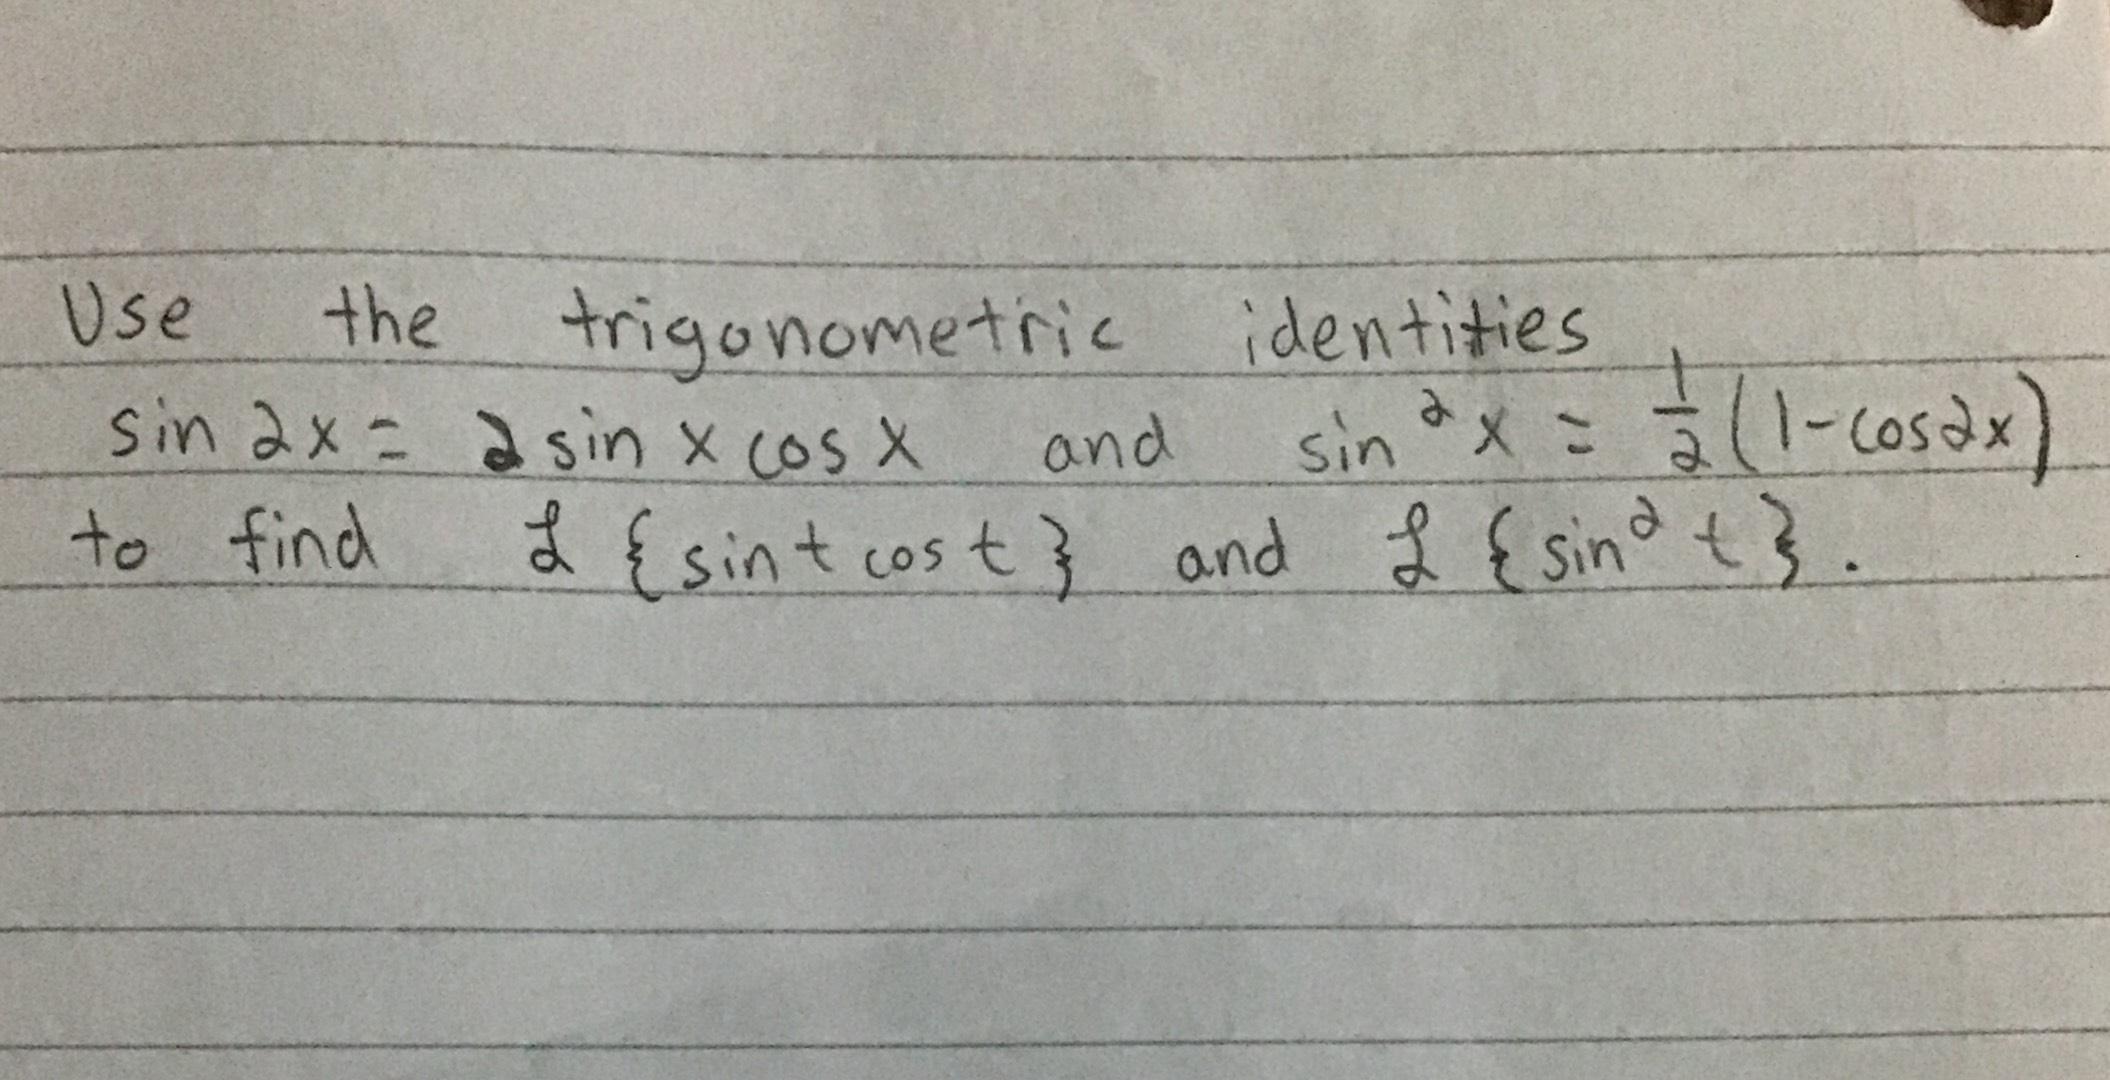 Use the trigonometric identities
sin 2x = 2 sin x cos x and sin² x = 1/2 (1-cos2x)
to find ℒ {sin t cos t} and ℒ {sin² t}.